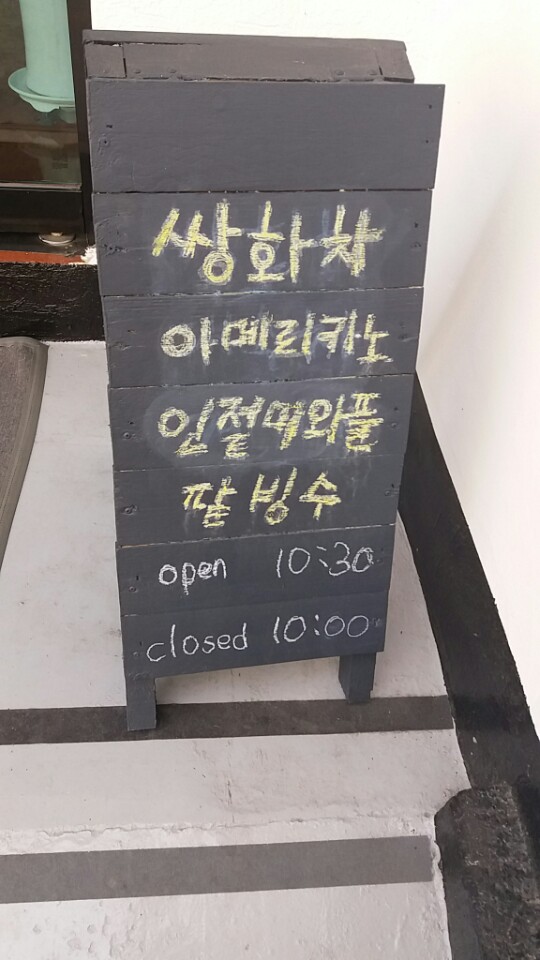 쌍화차
아메리카노
인절미와플
팥빙수
open 10:30
closed 10:00